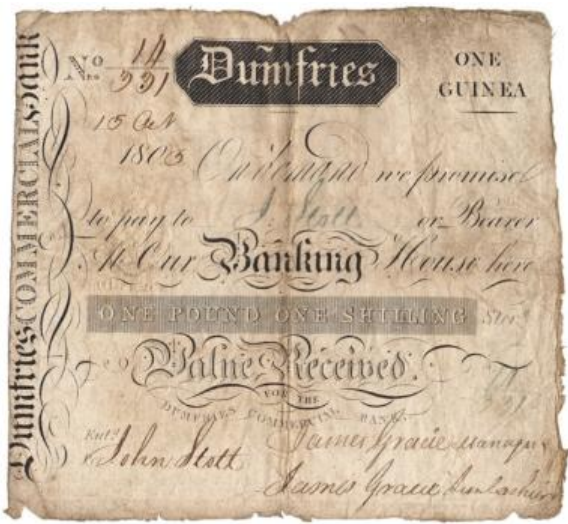 Dumfries COMMERCIAL Bank
No 14/331
Dumfries
ONE
GUINEA
15 Oct
1803 On demand we promise
to pay to J. Stott or Bearer
At Our Banking House here
ONE POUND ONE SHILLING Ster.g
Value Received.
FOR THE
DUMFRIES COMMERCIAL BANK
Ent.d John Stott
James Gracie Manager
James Gracie